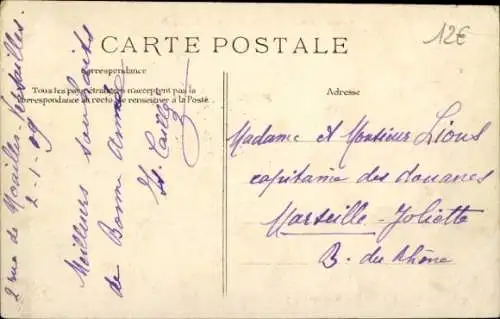 12€
CARTE POSTALE
Correspondance
Tous les pays étrangers n'acceptent pas la
correspondance au recto, se renseigner à la Poste.
Adresse
2 rue de Noailles-Versailles.
2-1-09
Meilleurs souhaits
de Bonne Année
Madame et Monsieur Lions
capitaine des douanes
Marseille-Joliette
B. du Rhône